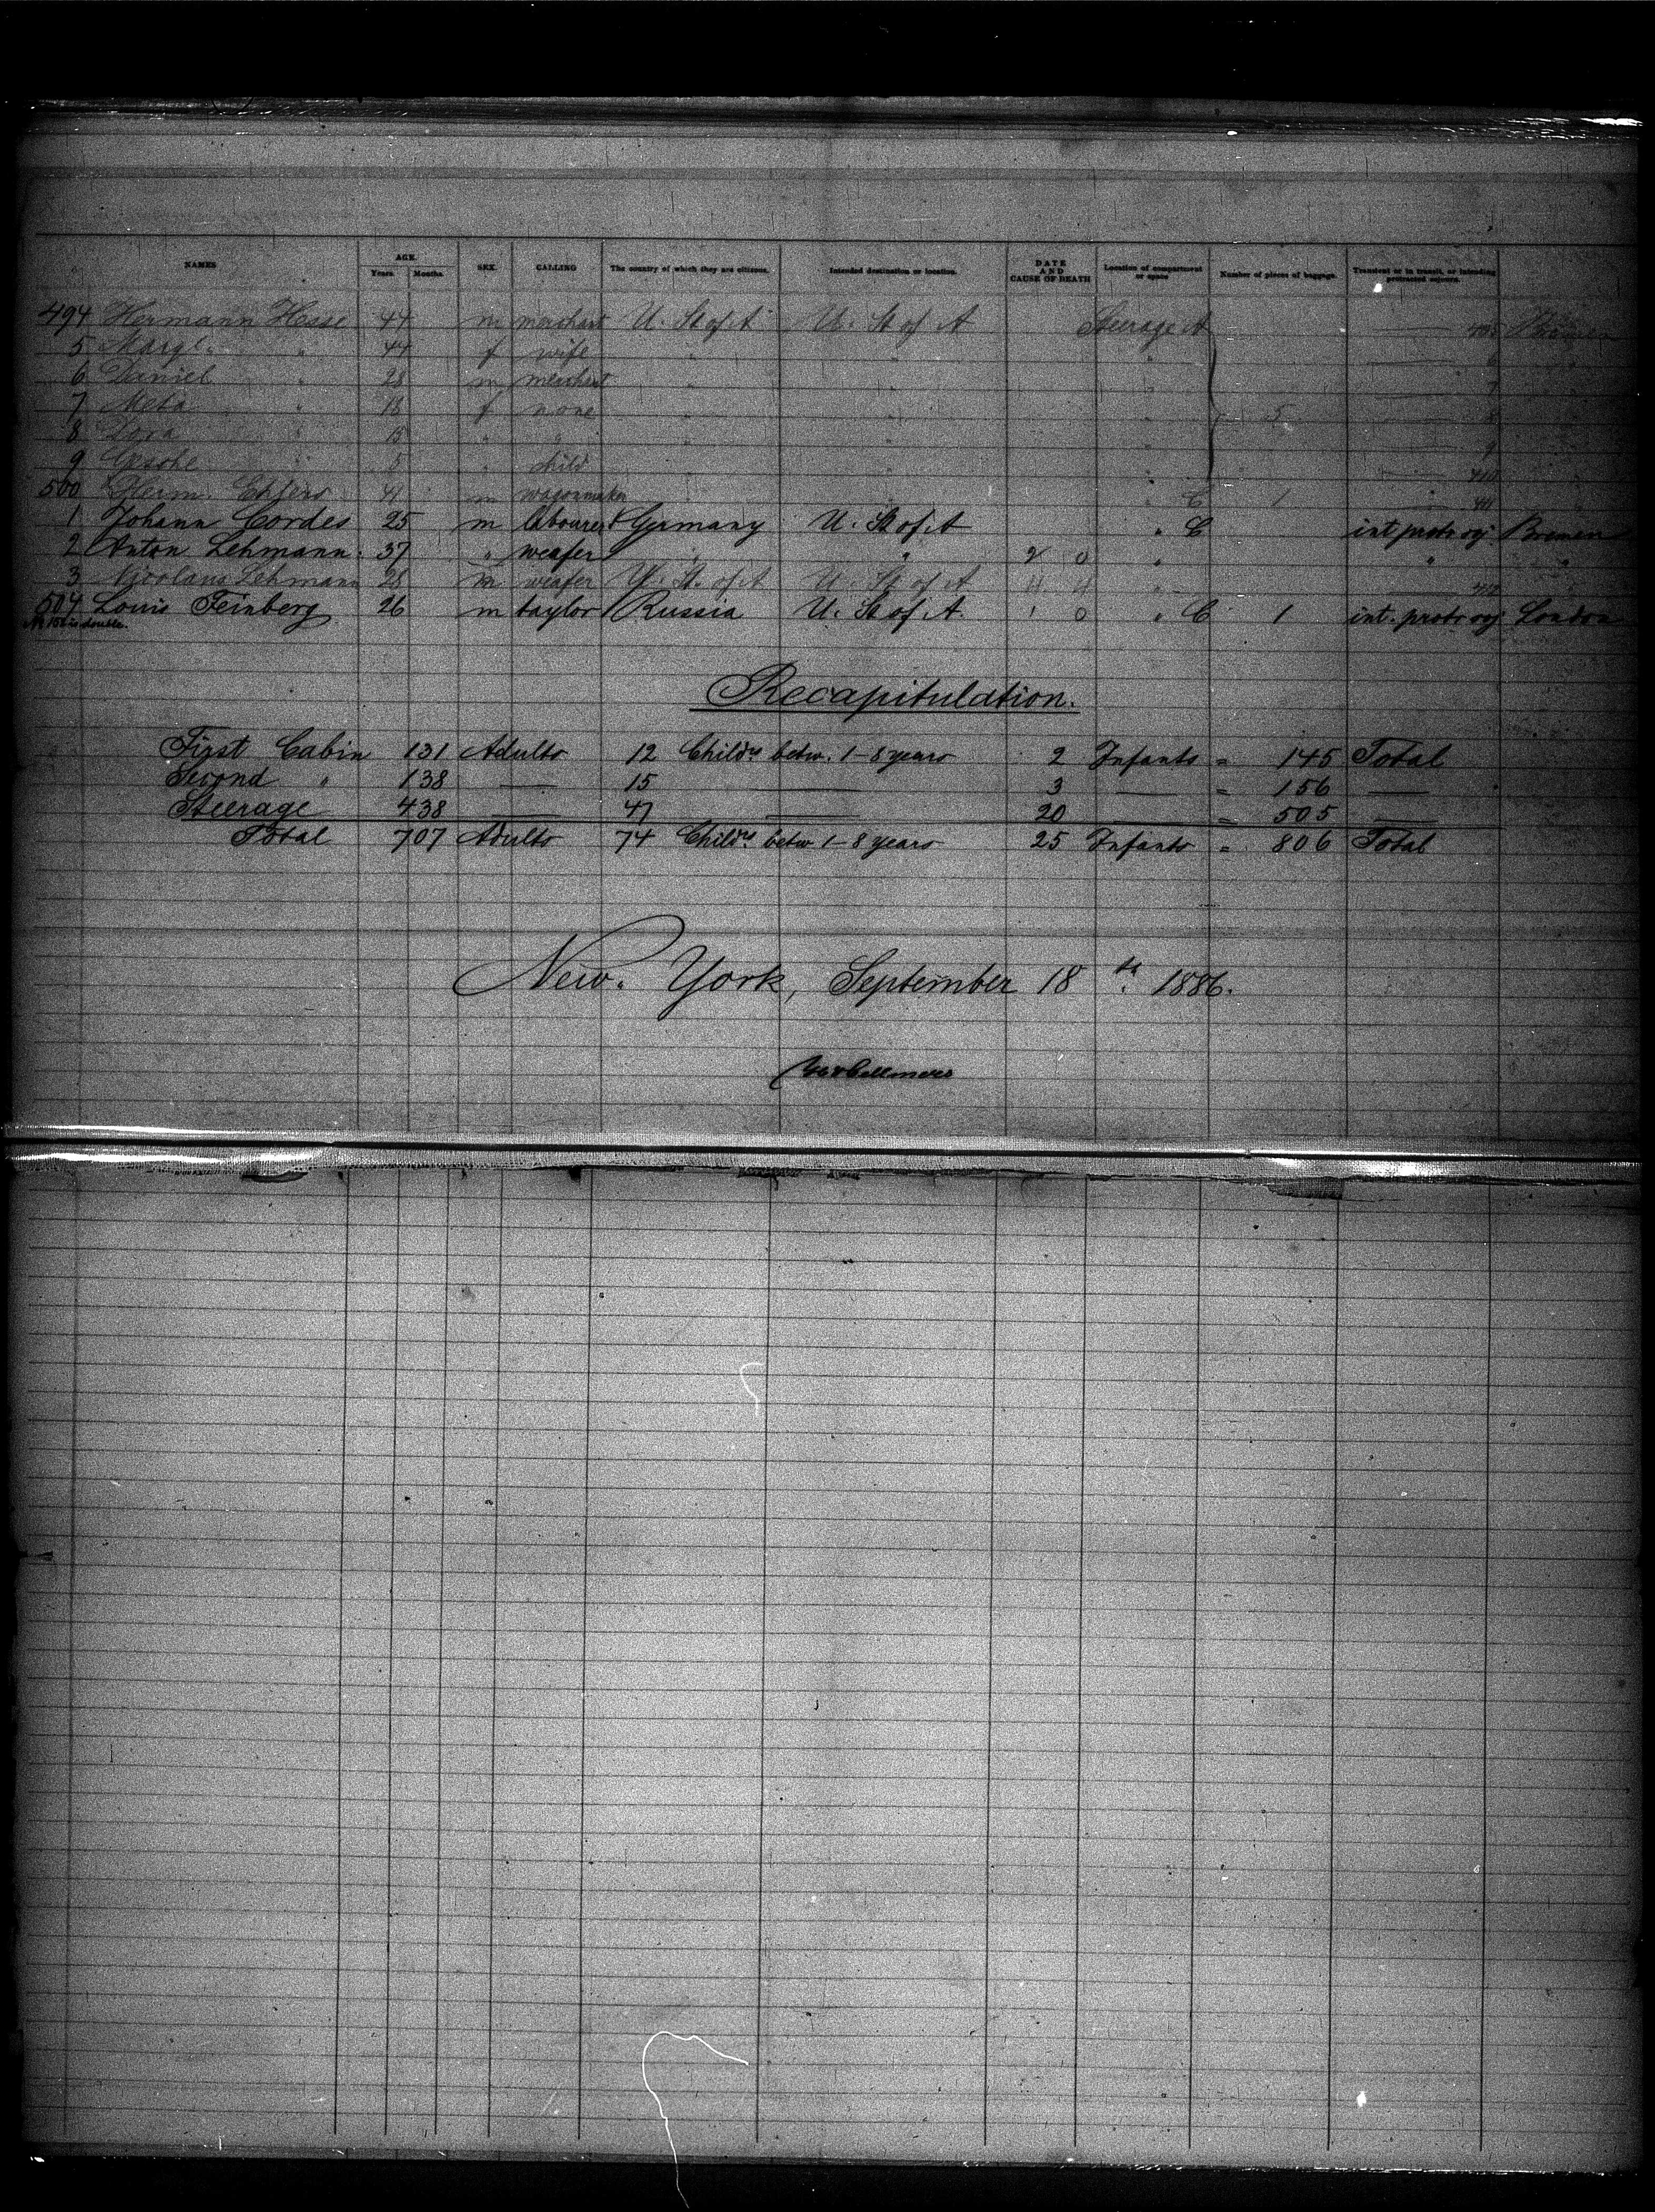 NAMES AGE. Years. Months. SEX. CALLING The country of which they are citizens. Intended destination or location. DATE AND CAUSE OF DEATH Location of compartment or space Number of pieces of baggage. Transient or in transit, or intending protracted sojourn.
494 Hermann Hesse 44 m merchant U. St of A U. St of A Steerage A
5 " 44 f wife " " "
6 Daniel " 28 m merchant " " " 7
7 Meta " 18 f none " " " 5 8
8 Dora " 15 " " " " " 9
9 Gesche " 5 " child " " " 410
500 Herm. Ehlers 41 m wagonmaker " " " C 1 411
1 Johann Cordes 25 m labourer Germany U. St of A " C int. protr. soj. Bremen
2 Anton Lehmann 37 " weafer " " 2 0 " " "
3 Nicolaus Lehmann 28 m weafer U. St. of A U. St of A " 412 "
504 Louis Feinberg 26 m taylor Russia U. St of A. 1 0 " C 1 int. protr. soj. London
is double.
Recapitulation.
First Cabin 131 Adults 12 Childrn betw. 1-8 years 2 Infants = 145 Total
Second " 138 — 15 — 3 — = 156 —
Steerage 438 — 47 — 20 — = 505 —
Total 707 Adults 74 Childrn betw 1-8 years 25 Infants = 806 Total
New. York, September 18th. 1886.